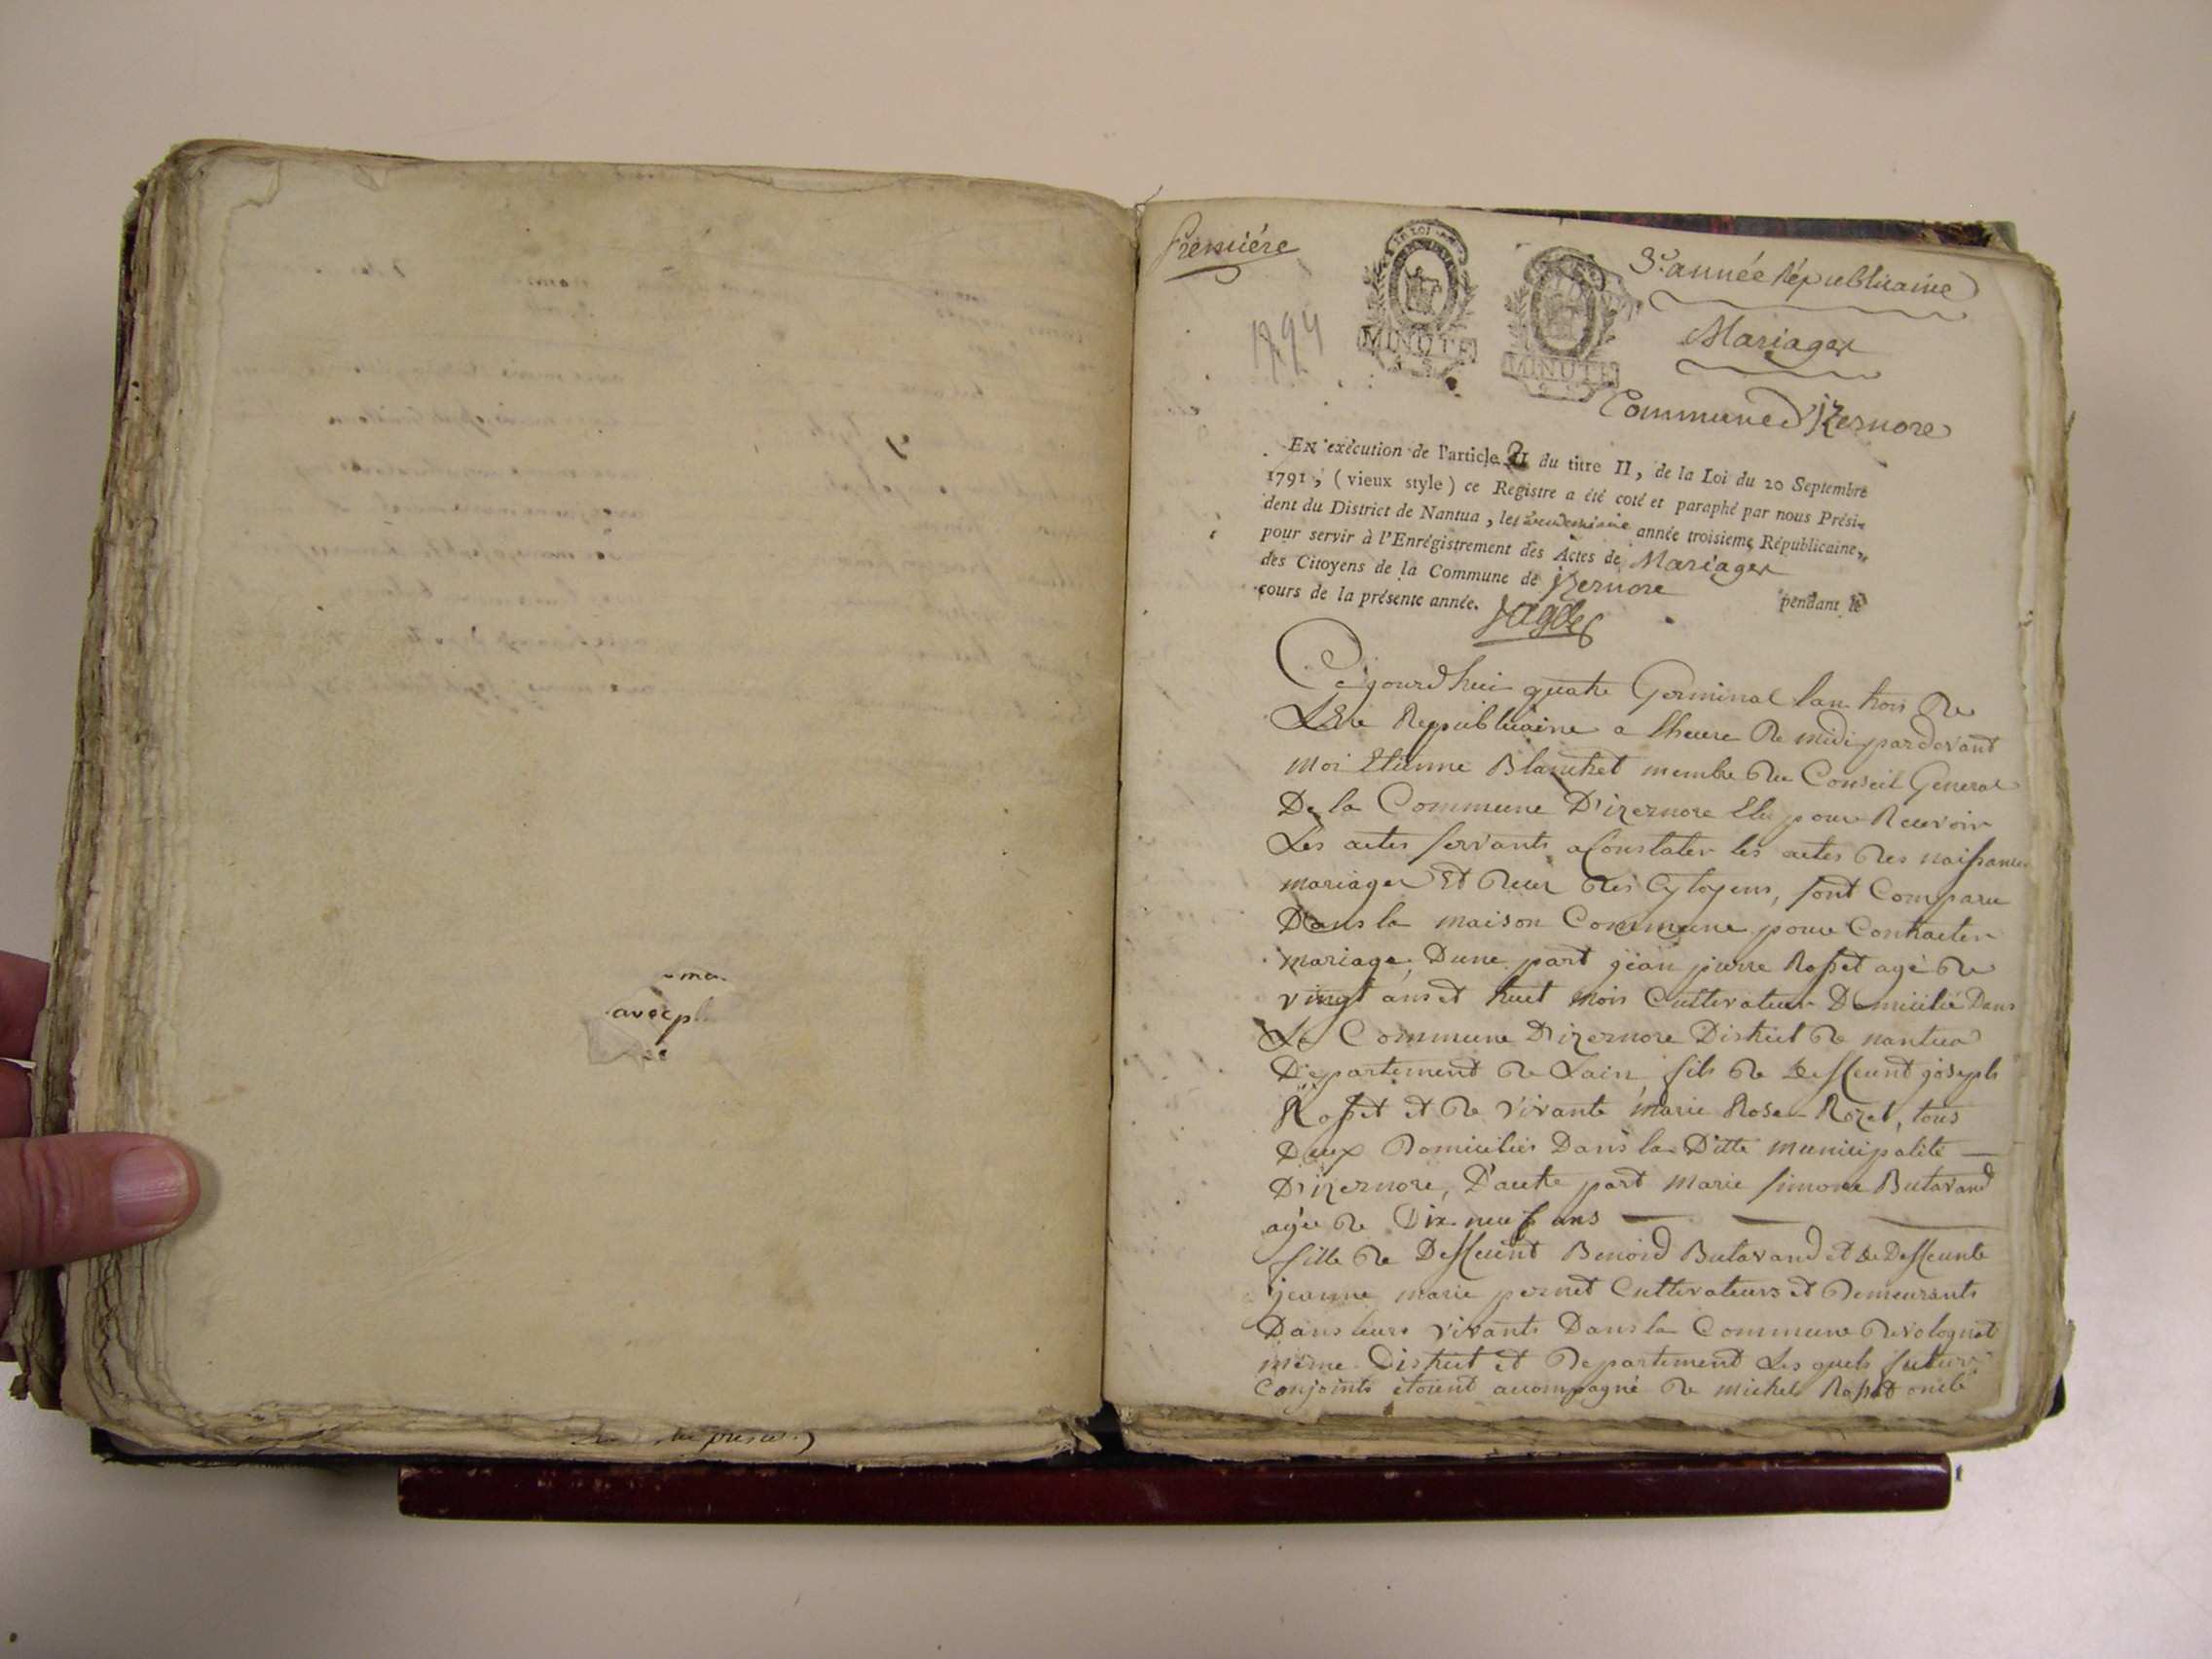 ma
avec
Premiére
1794
LA LOI
MINUTE
MINUTE
3e. année Républicaine
Mariages
Commune d'Izernore
En exécution de l'article II du titre II, de la Loi du 20 Septembre
1791, (vieux style) ce Registre a été coté et paraphé par nous Prési-
dent du District de Nantua, le vendemiaire année troisieme Républicaine,
pour servir à l'Enrégistrement des Actes de Mariages
des Citoyens de la Commune de Izernore pendant le
cours de la présente année.
Cejourdhui quatre Germinal lan trois de
LEre Republicaine a lheure de midi pardevant
moi Etienne Blanchet membre du Conseil General
De la Commune D'izernore Elu pour Recevoir
Les actes servants a Constater les actes des naissances
mariages Et deces des Cytoyens, sont Comparu
Dans la maison Commune pour Contracter
mariage, Dune part jean pierre Rosset agé de
vingt ans et huit mois Cultivateur Domicilié Dans
La Commune D'izernore District de nantua
Departement de Lain, fils de Deffunt joseph
Rosset et de vivante marie Rose Rozet, tous
Deux Domiciliés Dans la Ditte municipalité —
D'izernore, D'autre part marie simone Butavand
agée de Dix neuf ans — — —
fille de Deffunt Benoid Butavand et de Deffunte
jeanne marie pernet Cultivateurs et Demeurants
Dans leurs vivants Dans la Commune de volognat
même District et Departement Les quels futurs
Conjoints étoient accompagné de michel Rosset oncle